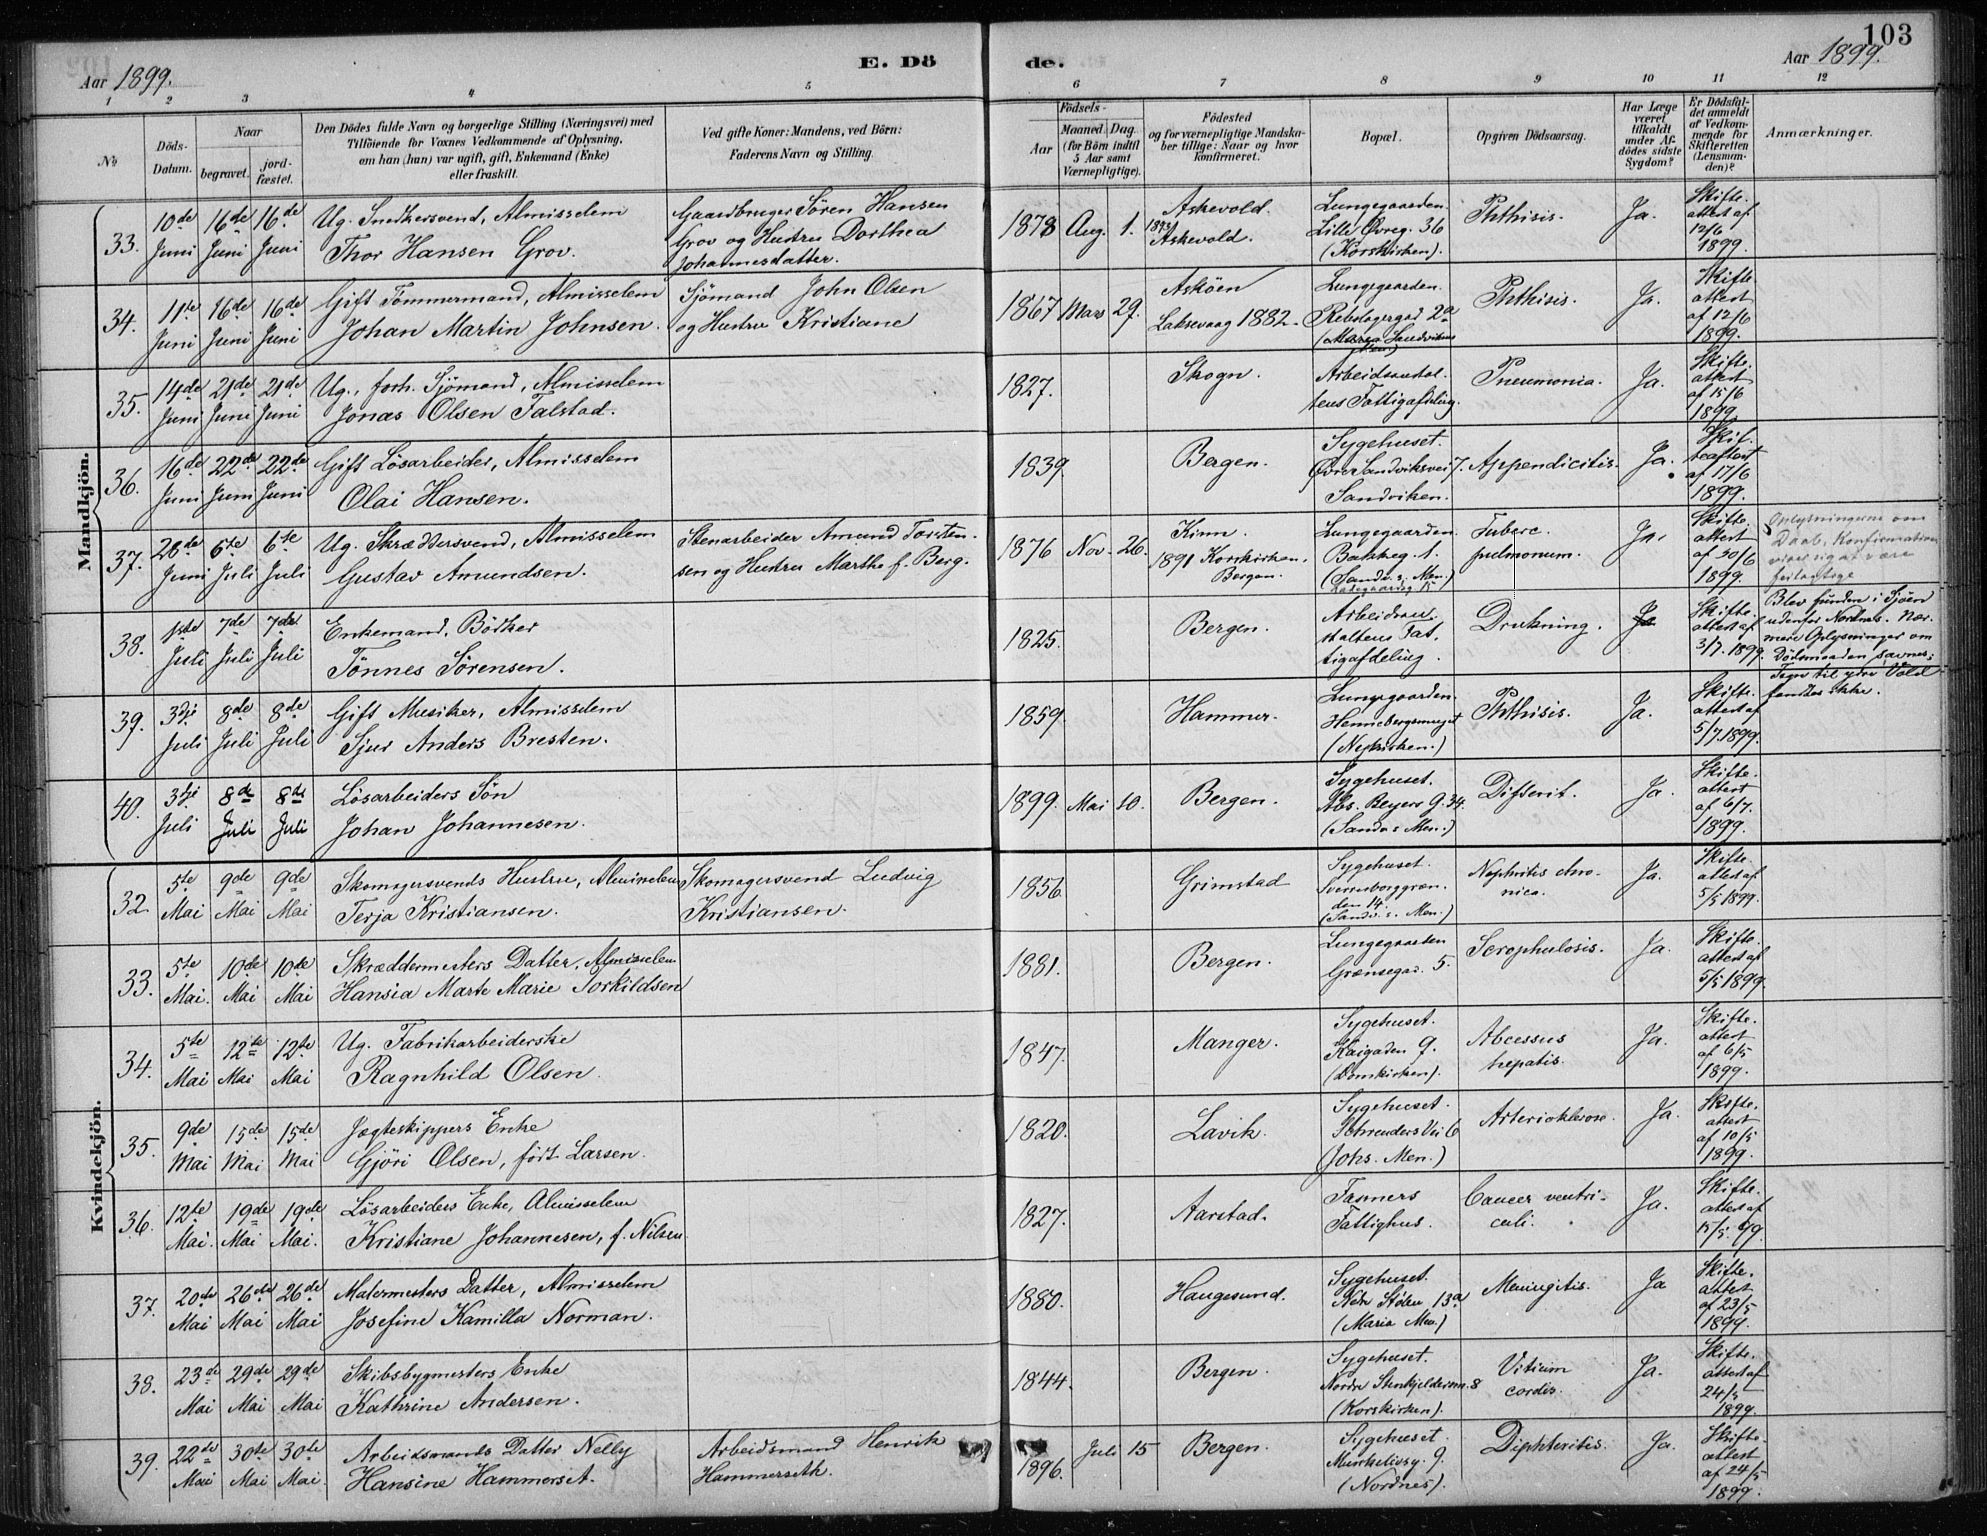 103
Aar 1899.
E. Dö
de.
Aar 1899.
1 2 3 4 5 6 7 8 9 10 11 12
№
Döds-Datum.
Naar
begravet.
jordfæstet.
Den Dödes fulde Navn og borgerlige Stilling (Næringsvei) med
Tilföiende for Voxnes Vedkommende af Oplysning,
om han (hun) var ugift, gift, Enkemand (Enke)
eller fraskilt.
Ved gifte Koner: Mandens, ved Börn:
Faderens Navn og Stilling.
Födsels-
Aar
Maaned. Dag.
(for Börn indtil
5 Aar samt
Værnepligtige).
Födested
og for værnepligtige Mandskaber tillige: Naar og hvor
konfirmeret.
Bopæl.
Opgiven Dödsaarsag.
Har Læge
været
tilkaldt
under Afdödes sidste
Sygdom?
Er Dödsfaldet anmeldt
af Vedkommende for
Skifteretten
(Lensmanden)?
Anmærkninger.
Mandkjön.
33. 10de Juni 16de Juni 16de Juni
Ug. Snedkersvend, Almisselem
Thor Hansen Grov.
Gaardbruger Sören Hansen
Grov og Hustru Dorthea
Johannesdatter.
1878 Aug. 1.
Askevold.
1893 Askevold.
Lungegaarden.
Lille Øvreg. 36
(Korskirken).
Phthisis. Ja.
Skifte.
attest af
12/6
1899.
34. 11te Juni 16de Juni 16de Juni
Gift Tömmermand, Almisselem
Johan Martin Johnsen.
Sjömand John Olsen
og Hustru Kristiane
1867 Mars 29.
Asköen
Laksevaag 1882.
Lungegaarden.
Rebslagergad 2a
Phthisis. Ja.
Skifte.
attest
af 12/6
1899.
35. 14de Juni 21de Juni 21de Juni
Ug., forh. Sjömand, Almisselem
Jonas Olsen Falstad.
1827.
Skogn.
Arbeidsanstaltens Fattigafdeling.
Pneumonia. Ja.
Skifte.
attest
af 15/6
1899
36. 16de Juni 22de Juni 22de Juni
Gift Lösarbeider, Almisselem
Olai Hansen.
1839.
Bergen.
Sygehuset.
Øvre Sandviksvei 7.
Sandviken.
Appendicitis. Ja.
Skifteattest
af 17/6
1899.
37. 28de Juni 6te Juli 6te Juli
Ug. Skræddersvend, Almisselem
Gustav Amundsen.
Stenarbeider Amund Torstensen og Hustru Marthe f. Berg.
1876 Nov. 26.
Kinn.
1891 Korskirken,
Bergen.
Lungegaarden.
Bakkeg. 1.
(Sandv.s. Men.)
Tuberc.
pulmonum. Ja.
Skifte.
attest
af 30/6
1899.
Oplysningerne om
Daab, Konfirmation
viser sig at være
feilagtige
38. 1ste Juli 7de Juli 7de Juli
Enkemand, Bödker
Tönnes Sörensen.
1825.
Bergen.
Arbeidsanstaltens Fattigafdeling.
Drukning. Ja
Skifte.
attest af
3/7. 1899.
Blev funden i Sjöen
udenfor Nordnæs. Nærmere Oplysninger om
Dödsmaaden savnes;
Tegn til ydre Vold
fandtes ikke.
39. 3dje Juli 8de Juli 8de Juli
Gift Musiker, Almisselem
Sjur Anders Bresten.
1859.
Hammer.
Lungegaarden.
Hennebergsmuget
(Nykirken.)
Phthisis. Ja.
Skifte.
attest af
5/7.1899.
40. 3dje Juli 8de Juli 8de Juli
Lösarbeiders Sön
Johan Johannesen.
1899. Mai 10.
Bergen.
Sygehuset.
Abs. Beyers G. 34.
(Sandv.s Men.)
Difterit. Ja.
Skifte.
attest
af 6/7.
1899.
Kvindekjön.
32 5te Mai 9de Mai 9de Mai
Skomagersvends Hustru, Almisselem
Terja Kristiansen.
Skomagersvend Ludvig
Kristiansen.
1856.
Grimstad
Sygehuset.
Sverresborggrænden 14.
(Sandv.s. Men.)
Nephritis chronica. Ja.
Skifte.
attest af
5/5 1899.
33. 5te Mai. 10de Mai 10de Mai
Skræddermesters Datter, Almisselem
Hansia Marte Marie Torkildsen
1881.
Bergen.
Lungegaarden
Grænsegad. 5.
Scrophulosis. Ja.
Skifte.
attest af
5/5 1899.
34. 5te Mai 12te Mai 12te Mai
Ug. Fabrikarbeiderske
Ragnhild Olsen.
1847.
Manger.
Sygehuset.
Kaigaden 9.
(Domkirken).
Abcessus
hepatis. Ja.
Skifte.
attest
af 6/5
1899.
35. 9de Mai 15de Mai 15de Mai
Jægteskippers Enke
Gjöri Olsen, födt Larsen.
1820.
Lavik.
Sygehuset.
Schreuders Vei 6
(Johs. Men.)
Arterioklerose. Ja.
Skifte.
attest
af 10/5
1899.
36. 12te Mai. 19de Mai 19de Mai.
Lösarbeiders Enke, Almisselem
Kristiane Johannesen, f. Nilsen
1827.
Aarstad.
Tasmers
Fattighus.
Cancer ventriculi. Ja.
Skifte.
attest af
15/5. 99.
37. 20de Mai 26de Mai 26de Mai
Malermesters Datter, Almisselem
Josefine Kamilla Norman.
1880.
Haugesund.
Sygehuset.
Nedre Stölen 13a
(Maria Men.)
Meningitis. Ja
Skifte.
attest
af 23/5
1899.
38. 23de Mai 29de Mai 29de Mai
Skibsbygmesters Enke
Kathrine Andersen.
1844.
Bergen.
Sygehuset.
Nordre Stenkjelderen. 8
(Korskirken).
Vitium
cordis. Ja.
Skifte.
attest af
24/5
1899.
39. 22de Mai 30te Mai 30te Mai.
Arbeidsmands Datter Nelly
Hansine Hammerset.
Arbeidsmand Henrik
Hammerseth.
1896. Juli 15
Bergen.
Sygehuset.
Munkelivsg. 9.
(Nordnes).
Diphteritis. Ja.
Skifte.
attest
af 24/5
1899.